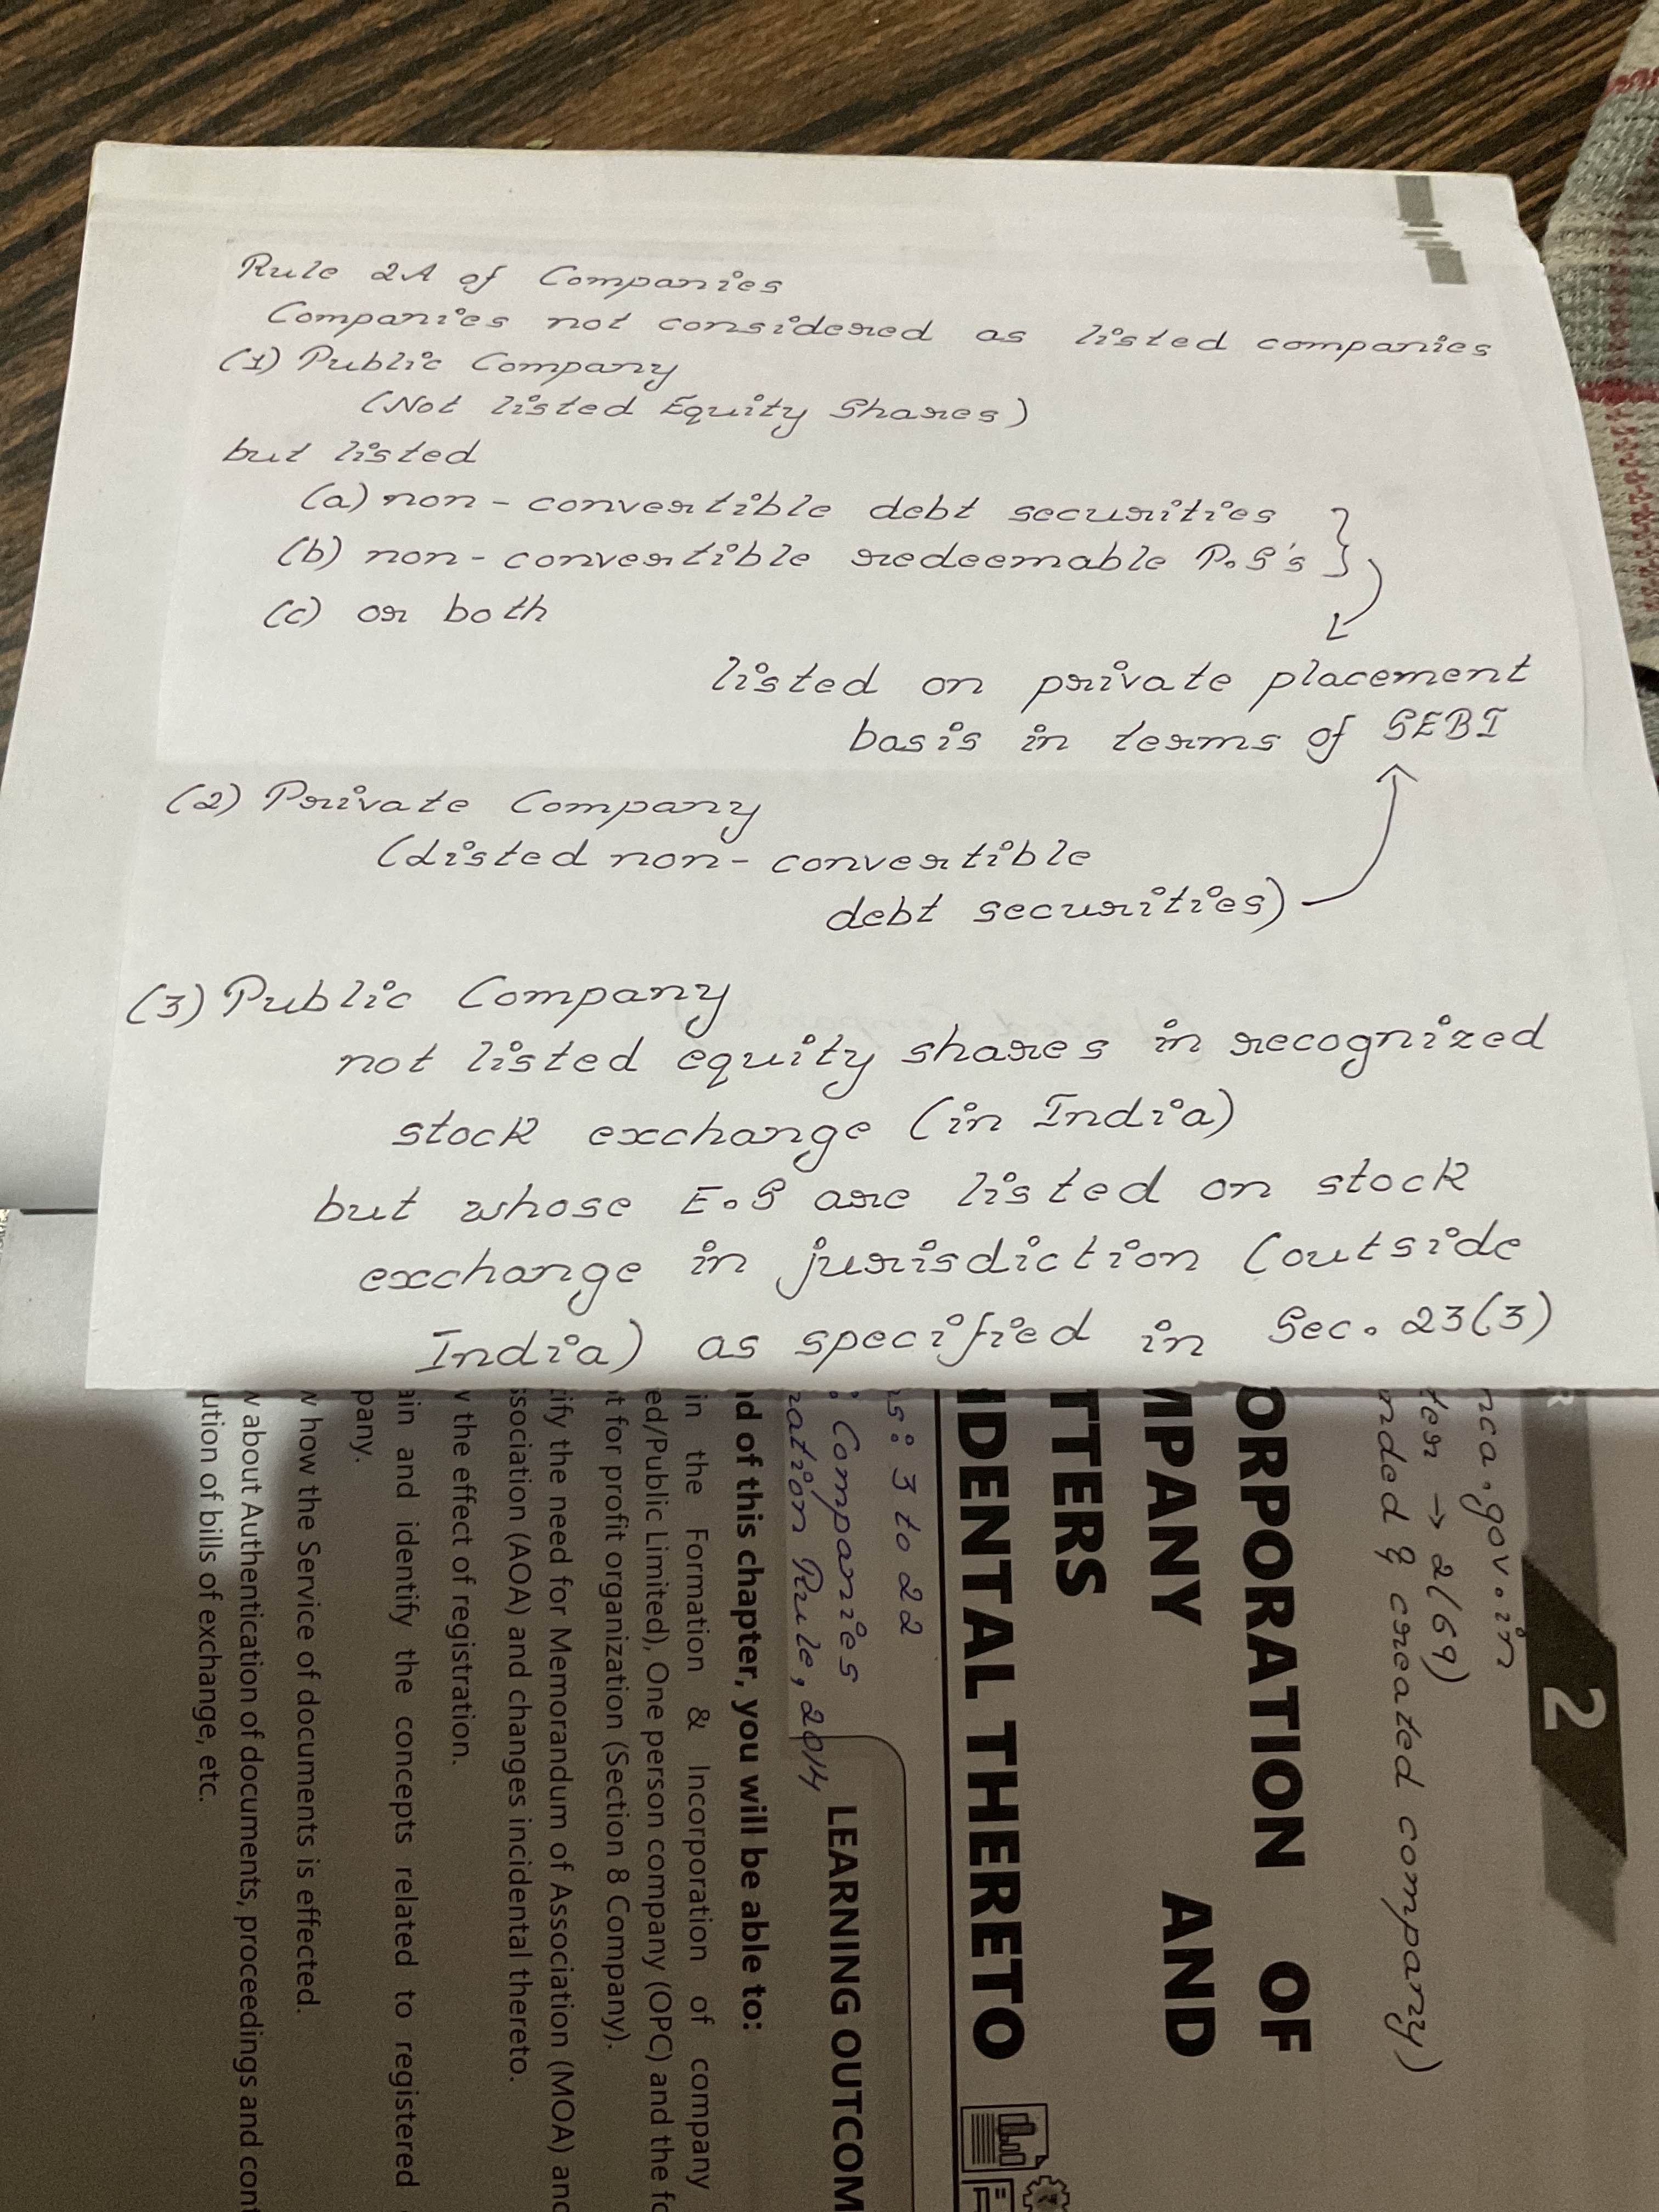 Rule 2A of Companies
Companies not considered as listed companies
(1) Public Company
(Not listed Equity Shares)
but listed
(a) non-convertible debt securities
(b) non-convertible redeemable P.S's
(c) or both
listed on private placement
basis in terms of SEBI
(2) Private Company
(Listed non-convertible
debt securities)
(3) Public Company
not listed equity shares in recognized
stock exchange (in India)
but whose E.S are listed on stock
exchange in jurisdiction (outside
India) as specified in Sec. 23(3)
2
nca.gov.in
ter → 2(69)
nded & created company)
ORPORATION OF
MPANY AND
TTERS
IDENTAL THERETO
ns: 3 to 22
: Companies
ration Rule, 2014
LEARNING OUTCOM
nd of this chapter, you will be able to:
in the Formation & Incorporation of company
ed/Public Limited), One person company (OPC) and the fo
t for profit organization (Section 8 Company).
ify the need for Memorandum of Association (MOA) and
ssociation (AOA) and changes incidental thereto.
v the effect of registration.
ain and identify the concepts related to registered
pany.
w how the Service of documents is effected.
w about Authentication of documents, proceedings and cont
ution of bills of exchange, etc.